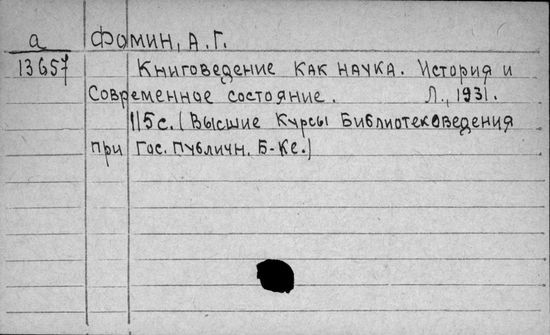 а Фомин, А. Г.
13657 Книговедение как наука. История и
современное состояние. Л., 1931.
115с. (Высшие Курсы Библиотековедения
при Гос. Публичн. Б-ке.)